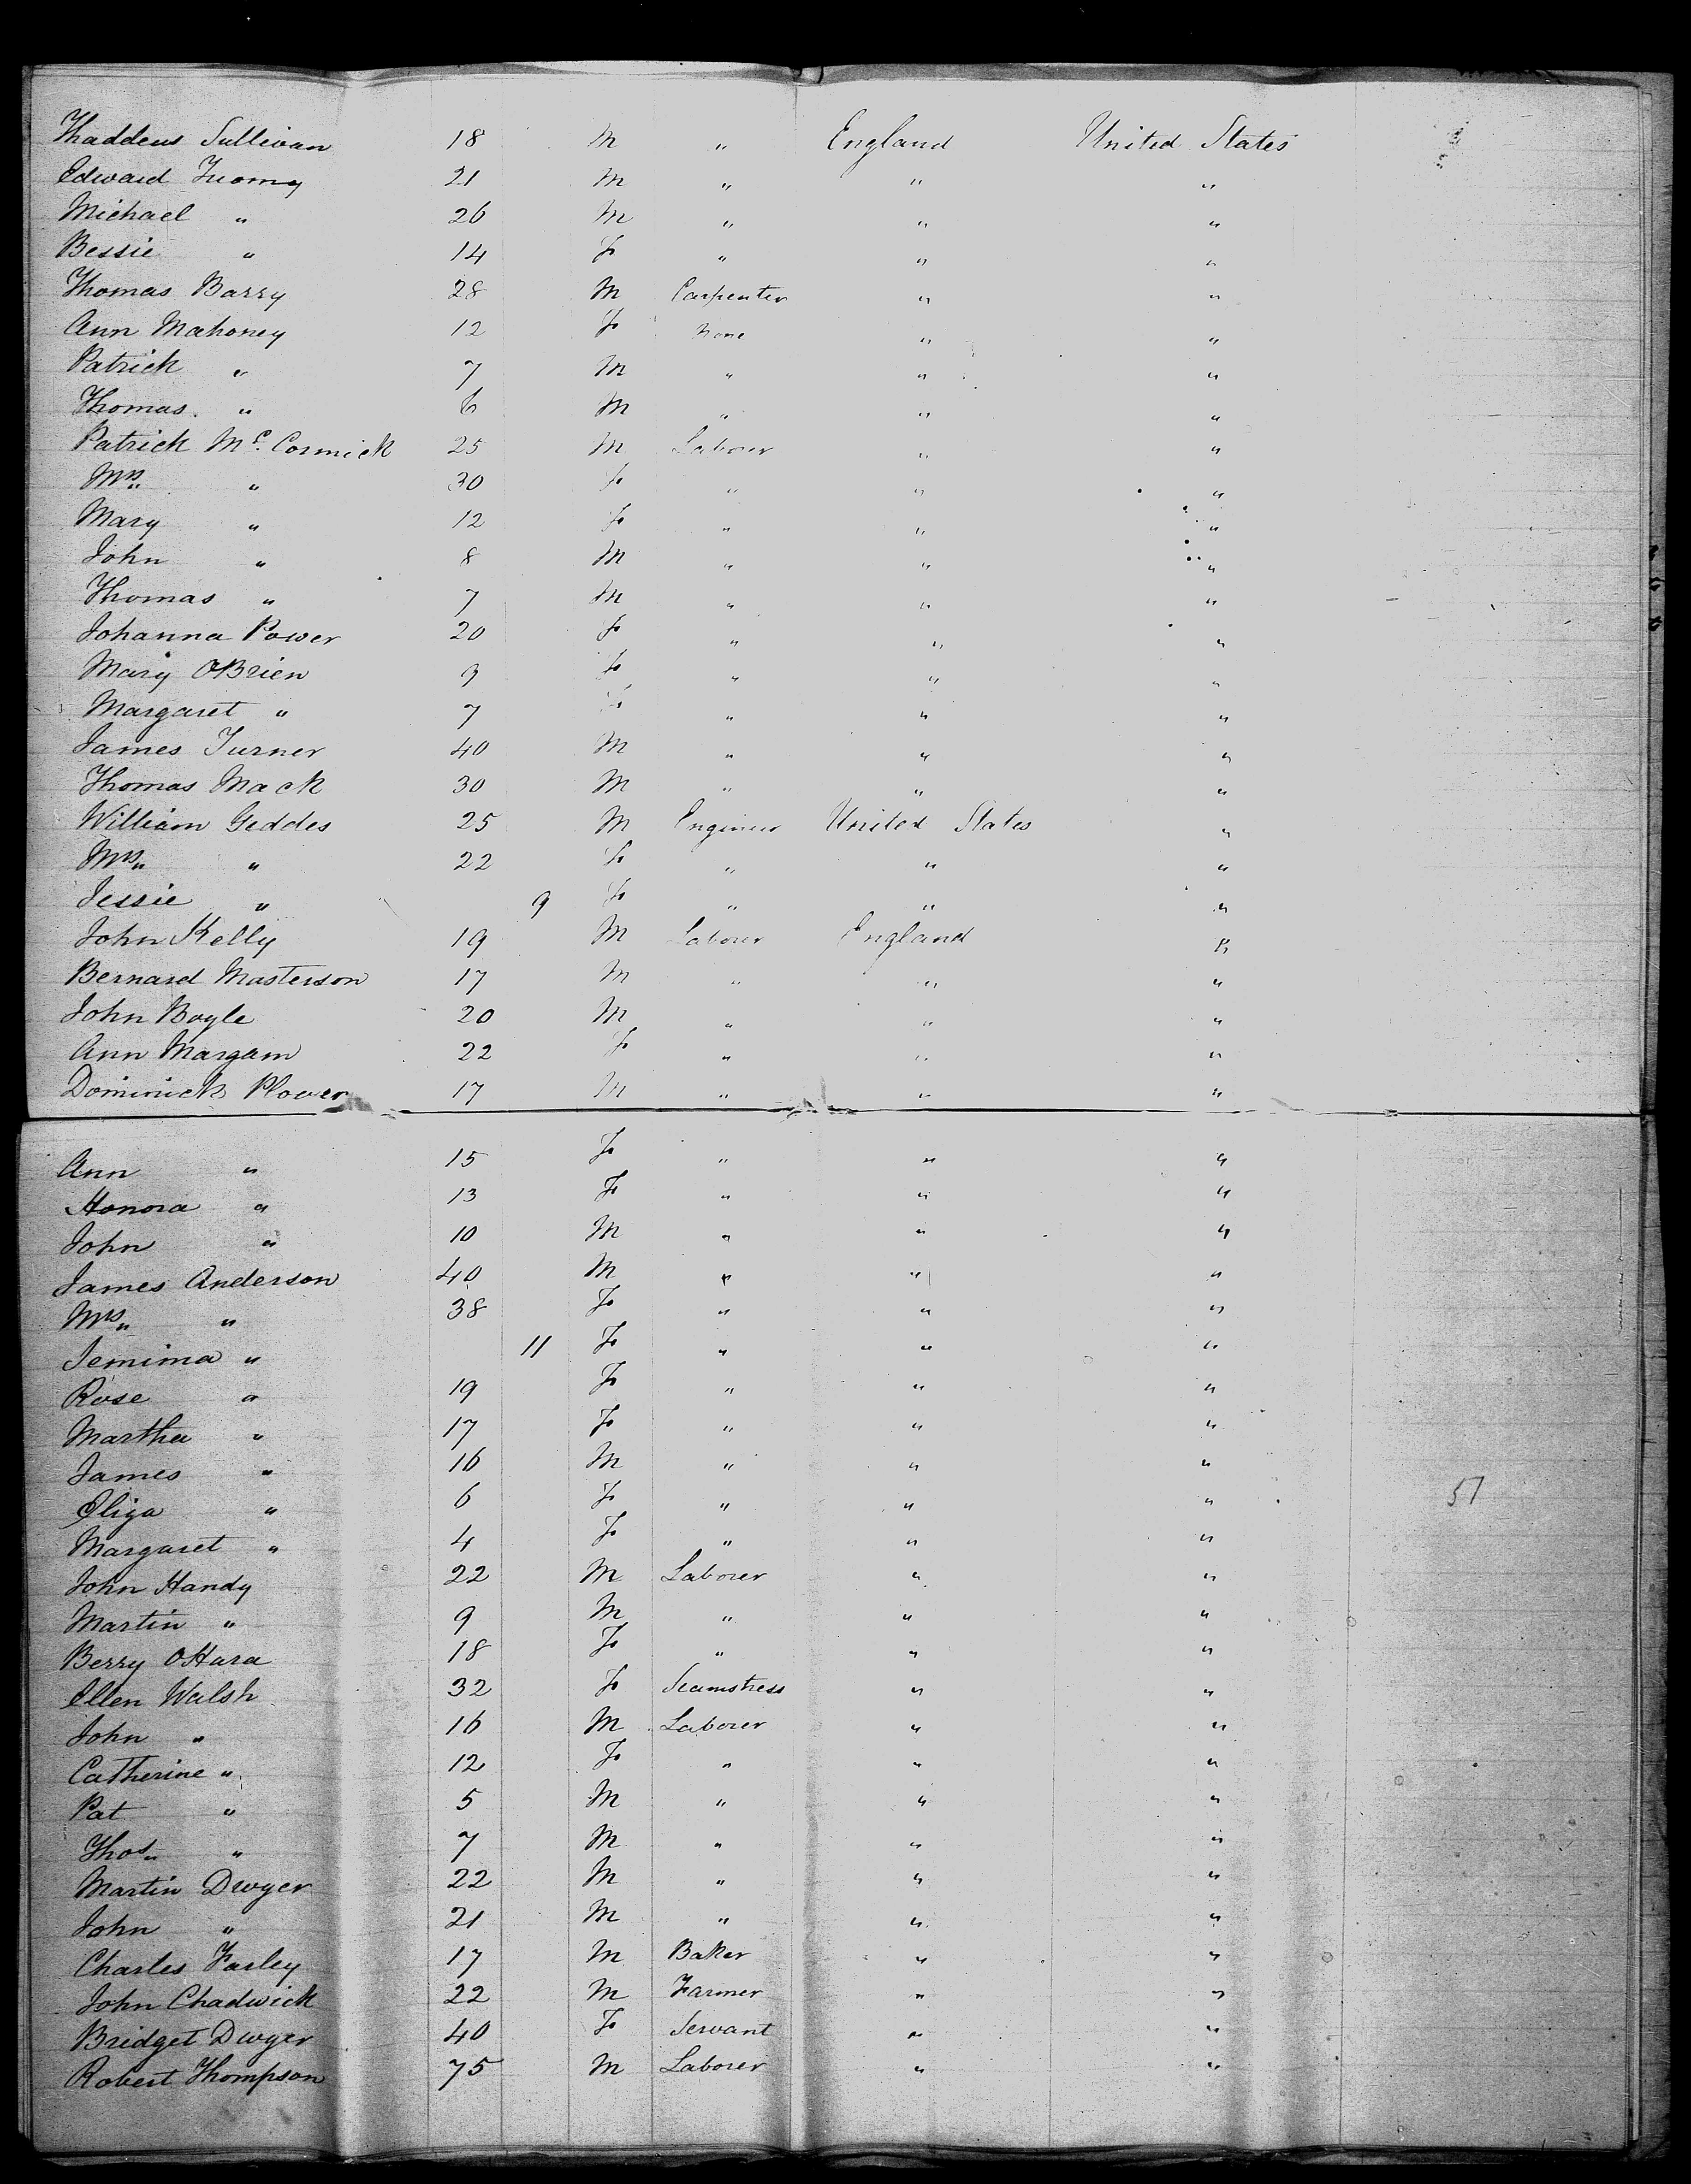 Thaddeus Sullivan 18 M " England United States
Edward Tuomy 21 M " " "
Michael " 26 M " " "
Bessie " 14 F " " "
Thomas Barry 28 M Carpenter " "
Ann Mahoney 12 F None " "
Patrick " 7 M " " "
Thomas " 6 M " " "
Patrick McCormick 25 M Laborer " "
Mrs " 30 F " " "
Mary " 12 F " " "
John " 8 M " " "
Thomas " 7 M " " "
Johanna Power 20 F " " "
Mary OBrien 9 F " " "
Margaret " 7 F " " "
James Turner 40 M " " "
Thomas Mack 30 M " " "
William Geddes 25 M Engineer United States "
Mrs " 22 F " " "
Jessie " 9 F " " "
John Kelly 19 M Laborer England "
Bernard Masterson 17 M " " "
John Boyle 20 M " " "
Ann Margam 22 F " " "
Dominick Plover 17 M " " "
Ann " 15 F " " "
Honora " 13 F " " "
John " 10 M " " "
James Anderson 40 M " " "
Mrs " 38 F " " "
Jemima " 11 F " " "
Rose " 19 F " " "
Martha " 17 F " " "
James " 16 M " " "
Eliza " 6 F " " " 57
Margaret " 4 F " " "
John Handy 22 M Laborer " "
Martin " 9 M " " "
Berry OHara 18 F " " "
Ellen Walsh 32 F Seamstress " "
John " 16 M Laborer " "
Catherine " 12 F " " "
Pat " 5 M " " "
Thos " 7 M " " "
Martin Dwyer 22 M " " "
John " 21 M " " "
Charles Farley 17 M Baker " "
John Chadwick 22 M Farmer " "
Bridget Dwyer 40 F Servant " "
Robert Thompson 75 M Laborer " "